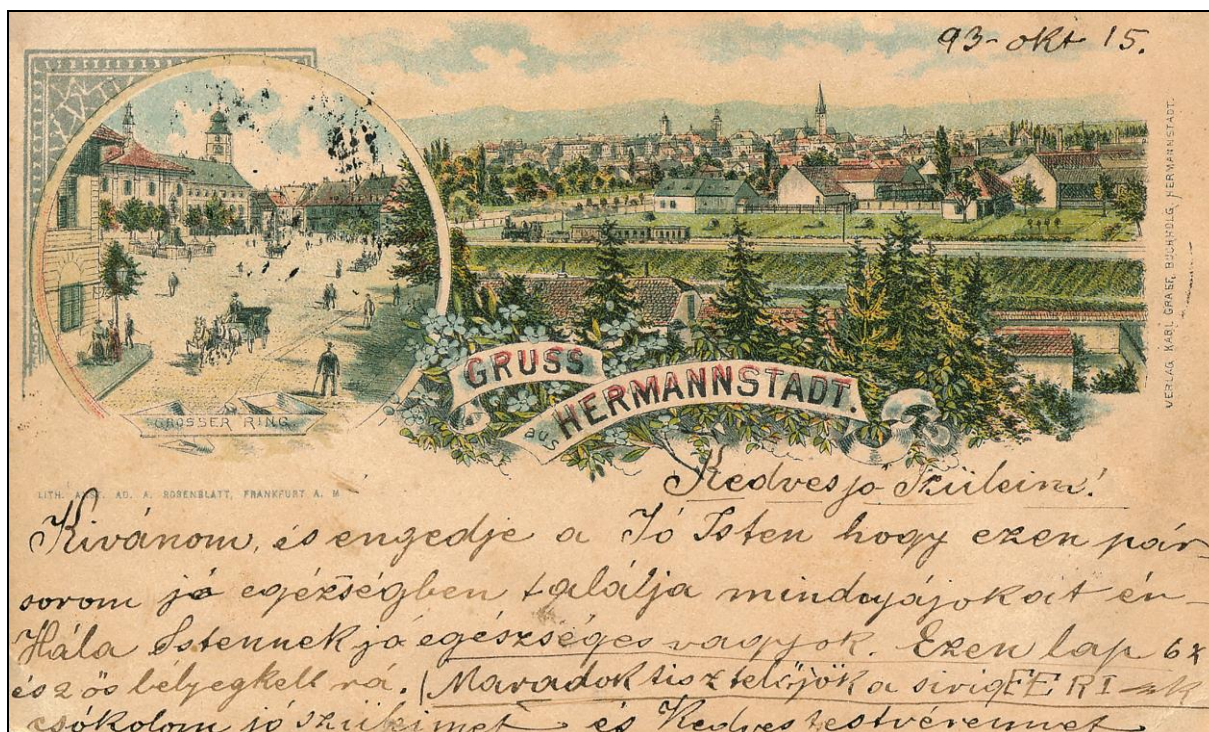 93- okt 15.
VERLAG KARL GRAEF, BUCHHDLG, HERMANNSTADT.
GROSSER RING.
GRUSS
aus HERMANNSTADT.
LITH. ANST. AD. A. ROSENBLATT, FRANKFURT A. M
Kedves jó Szüleim!
Kivánom, és engedje a Jó Isten hogy ezen pár
sorom jó egézségben találja mindnyájokat én
Hála Istennek jó egészséges vagyok. Ezen lap 6x
és 2 ős bélyegkell rá. (Maradok tisztelőjök a sirig FERI
csókolom jó szüleimet és Kedves testvéremmet